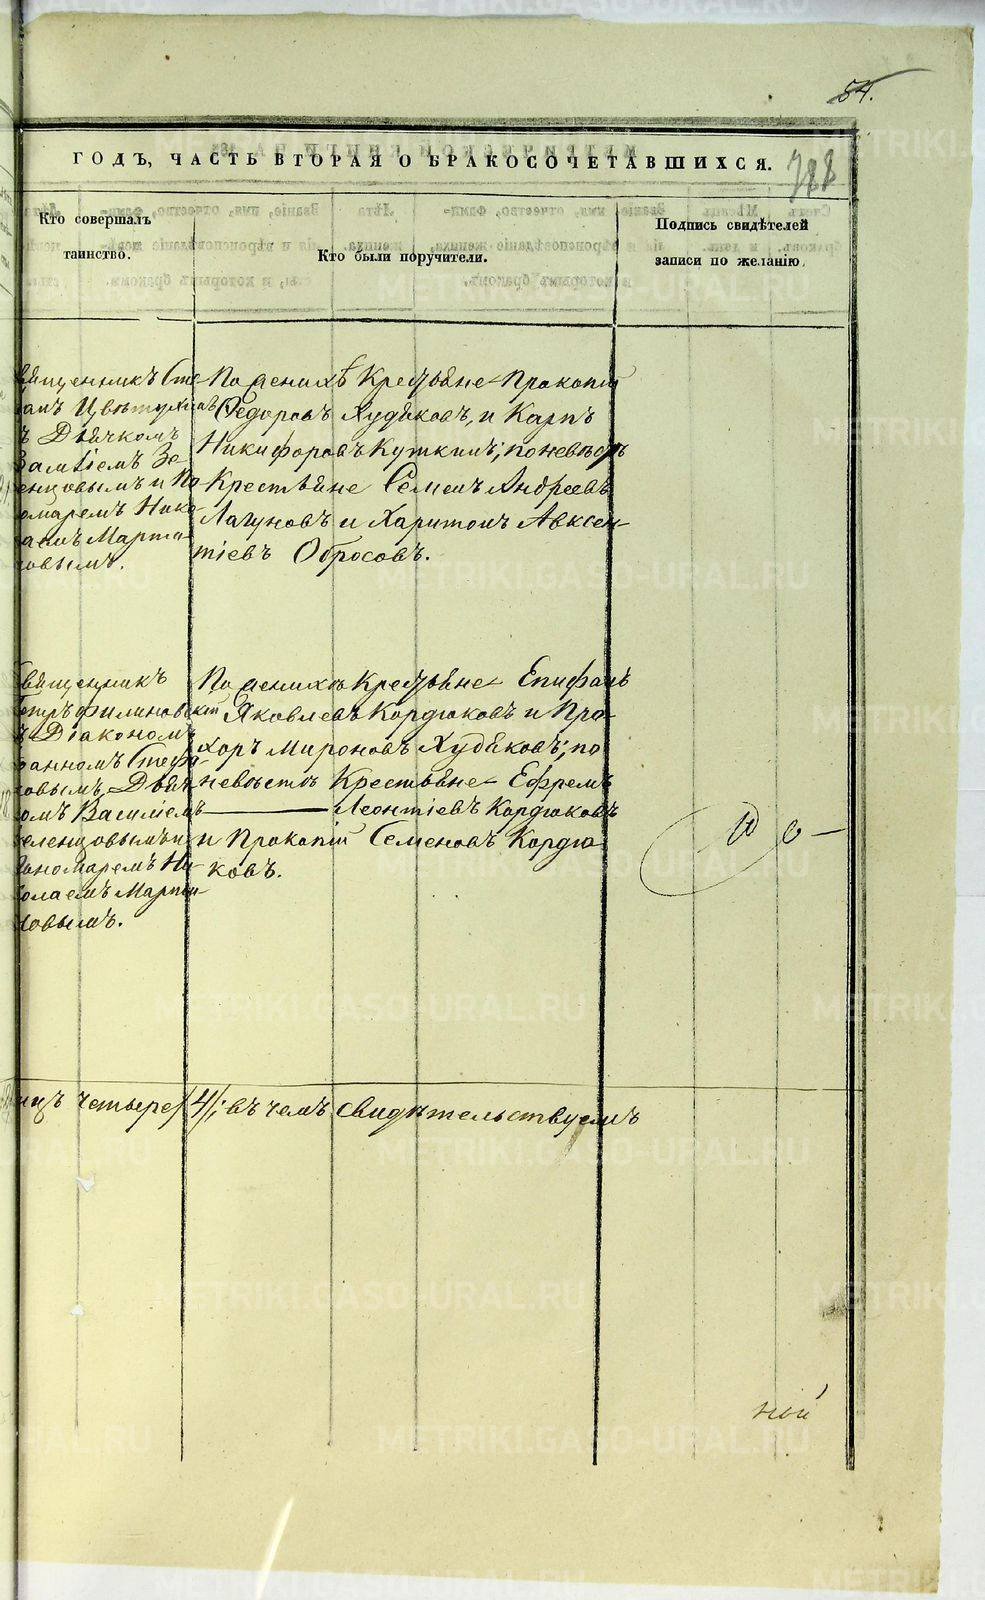 54.
ГОДЪ, ЧАСТЬ ВТОРАЯ О БРАКОСОЧЕТАВШИХСЯ.
388
Кто совершалъ
таинство.
Кто были поручители.
Подпись свидѣтелей
записи по желанію.
вященникъ Сте
фанъ Цвѣтухинъ
ъ Дьячкомъ
Зе
енцовымъ и По
омаремъ Нико
лаемъ Марти
новымъ.
По женихѣ Крестьяне Прокопій
Ѳедоровъ Худяковъ, и Карпъ
Никифоровъ Куткинъ; по невѣстѣ
Крестьяне Семенъ Андреевъ
Лагуновъ и Харитонъ Авксен-
тіевъ Обросовъ.
вященникъ
Петръ Филиновскій
ъ Діакономъ
анномъ Стефа
новымъ, Дьяч
омъ Василіемъ
еленцовымъ и
ономаремъ Ни-
олаемъ Марти
новымъ.
По женихѣ Крестьяне Епифанъ
Яковлевъ Кордюковъ и Про-
хоръ Мироновъ Худяковъ; по
невѣстѣ Крестьяне Ефремъ
Леонтіевъ Кордюковъ
и Прокопій Семеновъ Кордю
ковъ.
ицъ четыре /4/; въ чемъ свидѣтельствуемъ
ной
METRIKI.GASO-URAL.RU